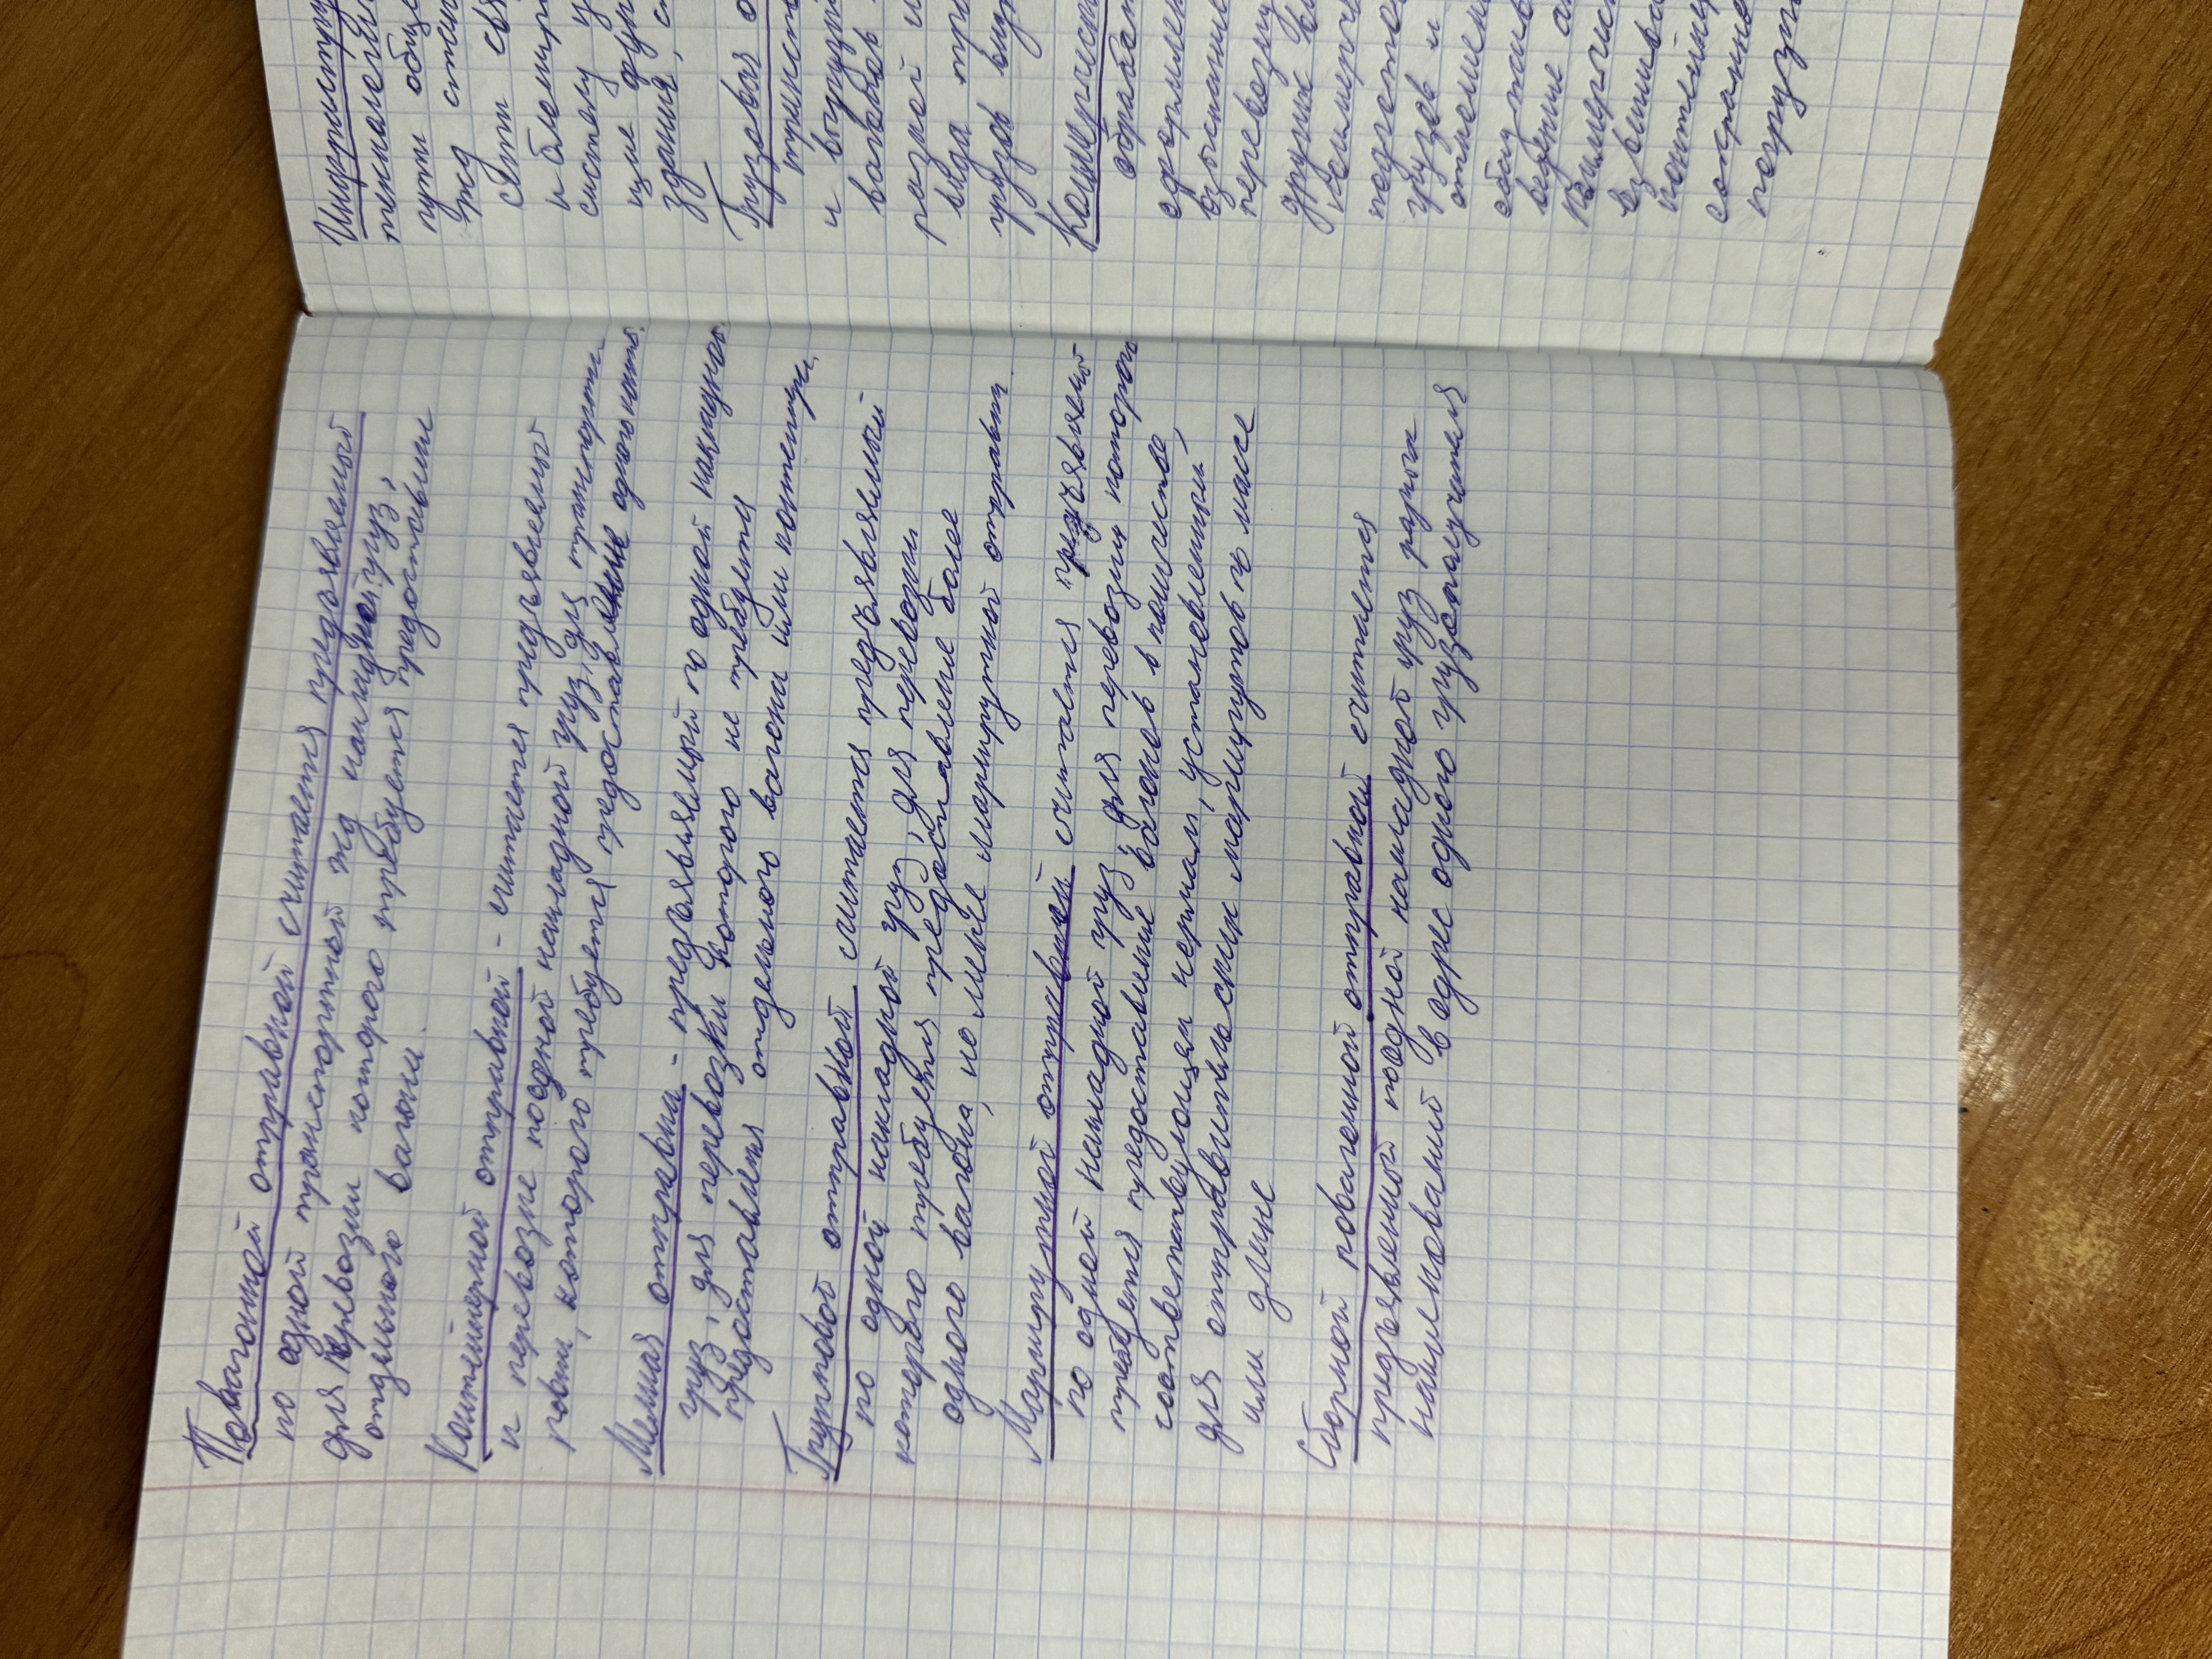 Повагонной отправкой считается предъявляемый
по одной транспортной жд накладной груз,
для перевозки которого требуется предоставление
отдельного вагона.
Контейнерной отправкой - считается предъявляемый
к перевозке по одной накладной груз, для транспорти-
ровки, которого требуется предоставление одного конт.
Мелкая отправка - предъявляемый по одной накладной
груз, для перевозки которого не требуется
предоставления отдельного вагона или контейнера
Групповой отправкой считается предъявляемый
по одной накладной груз, для перевозки
которого требуется предоставление более
одного вагона, но менее маршрутной отправки
Маршрутной отправкой считается предъявляемый
по одной накладной груз, для перевозки которого
требуется предоставление вагонов в количестве,
соответствующем нормам, установленным
для отправительских маршрутов по массе
или длине
Сборной повагонной отправкой считается
предъявленный по одной накладной груз разных
наименований в адрес одного грузополучателя
Инфраструк
технологич
пути обще
жд стан
СЦБ свя
и блокир
систему у
здания, с
Грузовая о
и выгрузк
вагонов
вида тра
грузов вну
Коммерческ
обработ
оформлен
взыскание
перевозку
других
коммерч
подготов
грузов и
ведение а
коммерческ
взвешива
контейнер
сохранно
погрузк